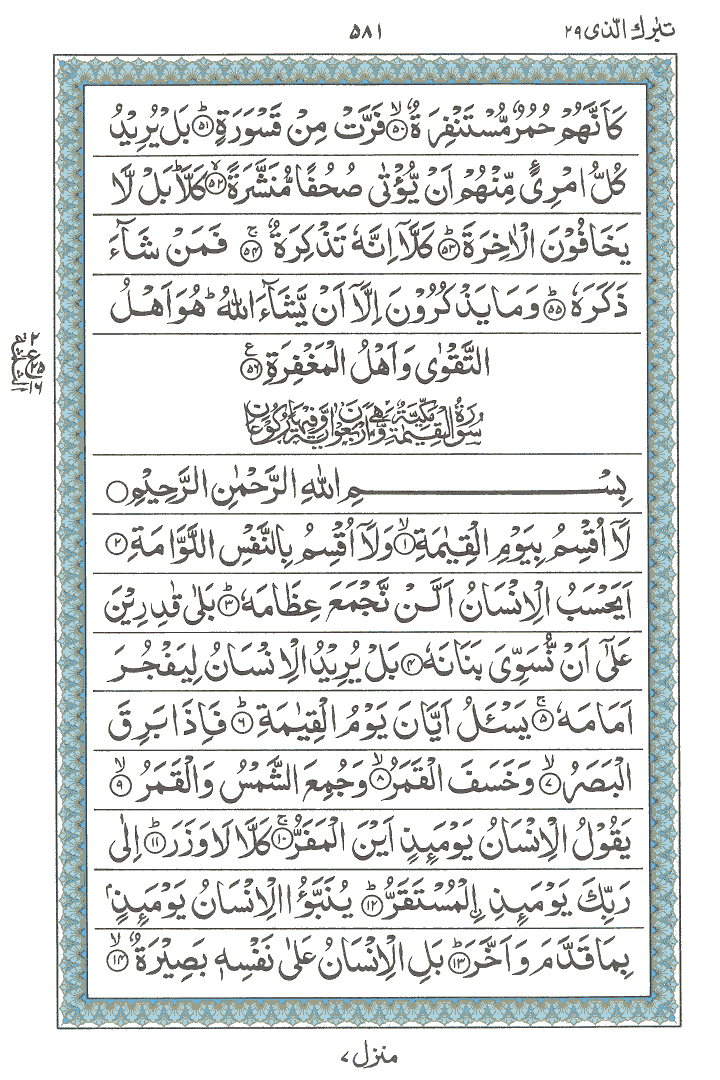 تبٰرك الّذی ۲۹
۵۸۱
كَاَنَّهُمْ حُمُرٌ مُّسْتَنْفِرَةٌ ۙ﴿۵۰﴾ فَرَّتْ مِنْ قَسْوَرَةٍ ؕ﴿۵۱﴾ بَلْ یُرِیْدُ
كُلُّ امْرِئٍ مِّنْهُمْ اَنْ یُّؤْتٰی صُحُفًا مُّنَشَّرَةً ۙ﴿۵۲﴾ كَلَّا ؕ بَلْ لَّا
یَخَافُوْنَ الْاٰخِرَةَ ؕ﴿۵۳﴾ كَلَّاۤ اِنَّهٗ تَذْكِرَةٌ ۚ﴿۵۴﴾ فَمَنْ شَآءَ
ذَكَرَهٗ ؕ﴿۵۵﴾ وَمَا یَذْكُرُوْنَ اِلَّاۤ اَنْ یَّشَآءَ اللّٰهُ ؕ هُوَ اَهْلُ
التَّقْوٰی وَاَهْلُ الْمَغْفِرَةِ ﴿۵۶﴾ ع
۲
ع
۲۵
۱۶
سُوْرَةُ الْقِیٰمَةِ مَكِّیَّةٌ وَّهِیَ اَرْبَعُوْنَ اٰیَةً وَّفِیْهَا رُكُوْعَانِ
بِسْمِ اللّٰهِ الرَّحْمٰنِ الرَّحِیْمِ
لَاۤ اُقْسِمُ بِیَوْمِ الْقِیٰمَةِ ۙ﴿۱﴾ وَلَاۤ اُقْسِمُ بِالنَّفْسِ اللَّوَّامَةِ ﴿۲﴾
اَیَحْسَبُ الْاِنْسَانُ اَلَّنْ نَّجْمَعَ عِظَامَهٗ ؕ﴿۳﴾ بَلٰی قٰدِرِیْنَ
عَلٰۤی اَنْ نُّسَوِّیَ بَنَانَهٗ ﴿۴﴾ بَلْ یُرِیْدُ الْاِنْسَانُ لِیَفْجُرَ
اَمَامَهٗ ۚ﴿۵﴾ یَسْـَٔلُ اَیَّانَ یَوْمُ الْقِیٰمَةِ ؕ﴿۶﴾ فَاِذَا بَرِقَ
الْبَصَرُ ۙ﴿۷﴾ وَخَسَفَ الْقَمَرُ ۙ﴿۸﴾ وَجُمِعَ الشَّمْسُ وَالْقَمَرُ ۙ﴿۹﴾
یَقُوْلُ الْاِنْسَانُ یَوْمَئِذٍ اَیْنَ الْمَفَرُّ ۚ﴿۱۰﴾ كَلَّا لَا وَزَرَ ؕ﴿۱۱﴾ اِلٰی
رَبِّكَ یَوْمَئِذِ اِ۟لْمُسْتَقَرُّ ؕ﴿۱۲﴾ یُنَبَّؤُا الْاِنْسَانُ یَوْمَئِذٍۭ
بِمَا قَدَّمَ وَاَخَّرَ ؕ﴿۱۳﴾ بَلِ الْاِنْسَانُ عَلٰی نَفْسِهٖ بَصِیْرَةٌ ۙ﴿۱۴﴾
منزل ۷